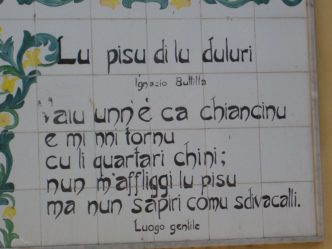 Lu pisu di lu duluri
Ignazio Buttitta
Vaiu unn'è ca chiancinu
e mi nni tornu
cu li quartari chini;
nun m'affliggi lu pisu
ma nun sapiri comu sdivacalli.
Luogo gentile